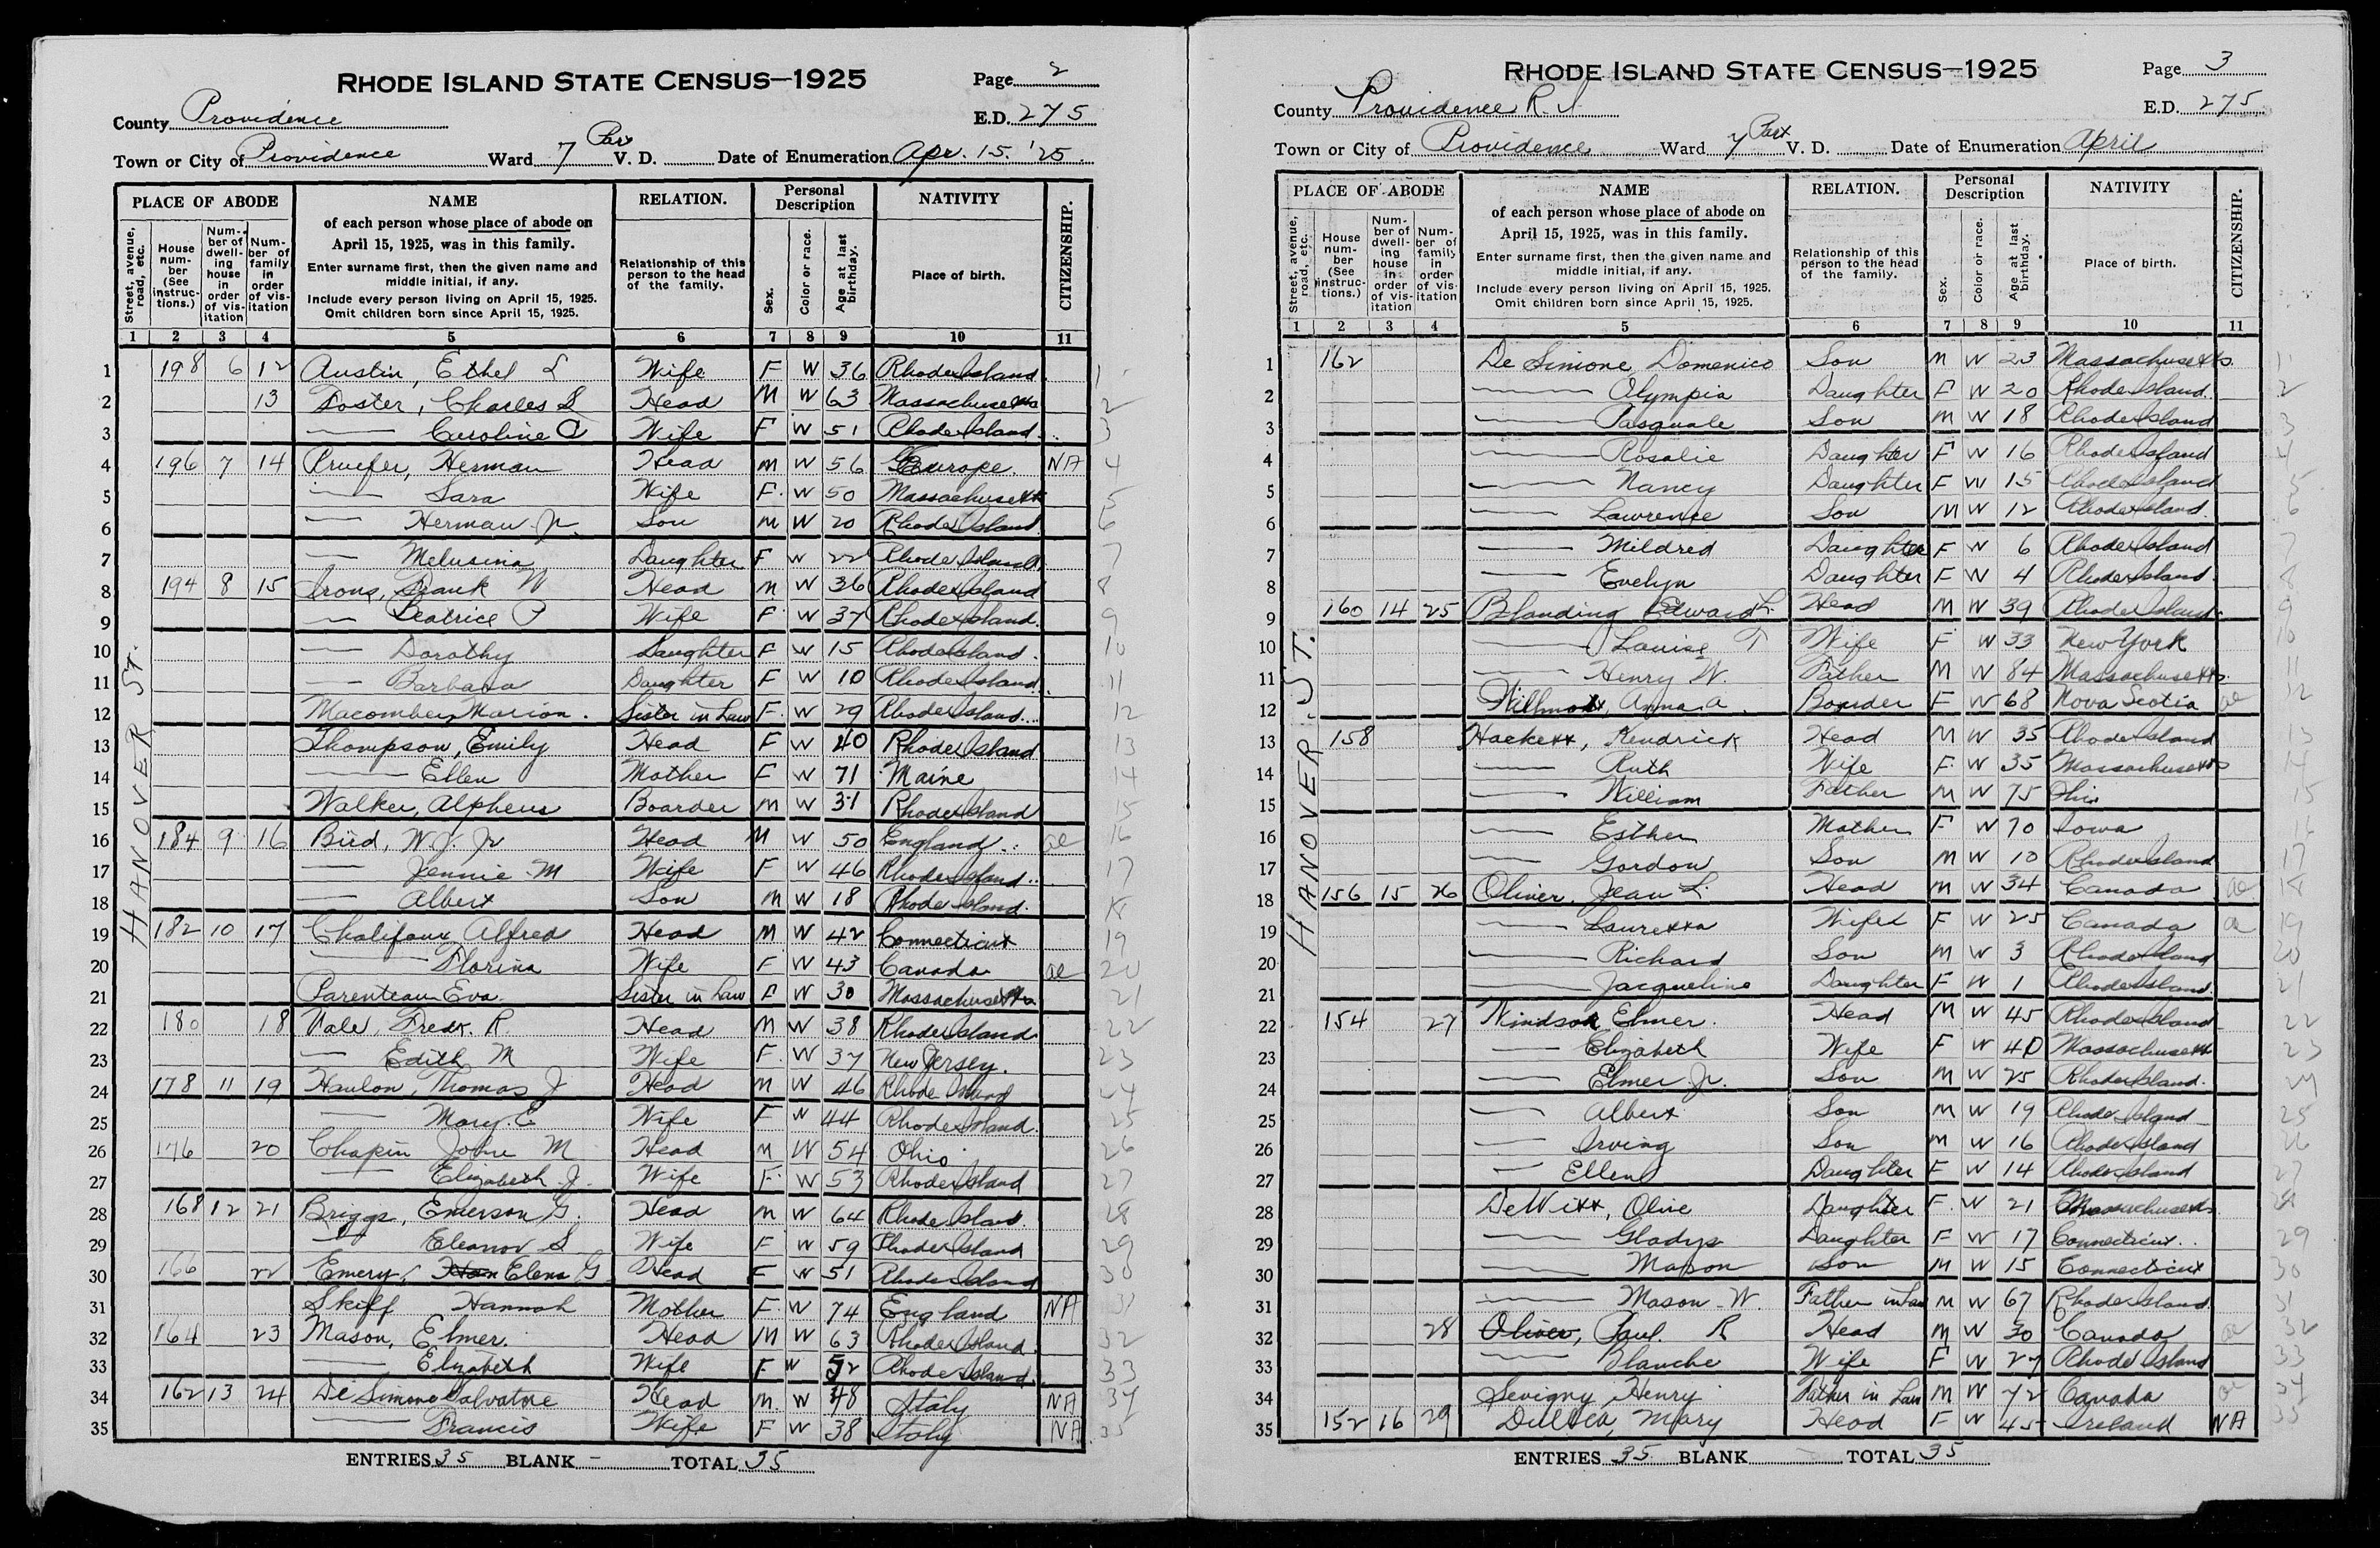 RHODE ISLAND STATE CENSUS—1925
Page 2
County Providence
E.D. 275
Town or City of Providence Ward 7 Part V. D. Date of Enumeration Apr. 15. '25
PLACE OF ABODE NAME RELATION. Personal Description NATIVITY CITIZENSHIP.
Street, avenue, road, etc. House number (See instructions.) Number of dwelling house in order of visitation Number of family in order of visitation of each person whose place of abode on April 15, 1925, was in this family. Enter surname first, then the given name and middle initial, if any. Include every person living on April 15, 1925. Omit children born since April 15, 1925. Relationship of this person to the head of the family. Sex. Color or race. Age at last birthday. Place of birth.
1 2 3 4 5 6 7 8 9 10 11
HANOVER ST.
1 198 6 12 Austin, Ethel L Wife F W 36 Rhode Island 1
2 13 Foster, Charles S Head M W 63 Massachusetts 2
3 — Caroline A Wife F W 51 Rhode Island 3
4 196 7 14 Pruefer, Herman Head M W 56 Europe NA 4
5 — Sara Wife F W 50 Massachusetts 5
6 — Herman Jr Son M W 20 Rhode Island 6
7 — Melusina Daughter F W 22 Rhode Island 7
8 194 8 15 Irons, Frank W Head M W 36 Rhode Island 8
9 — Beatrice P Wife F W 37 Rhode Island 9
10 — Dorothy Daughter F W 15 Rhode Island 10
11 — Barbara Daughter F W 10 Rhode Island 11
12 Macomber, Marion. Sister in Law F W 29 Rhode Island 12
13 Thompson, Emily Head F W 40 Rhode Island 13
14 — Ellen Mother F W 71 Maine 14
15 Walker, Alpheus Boarder M W 31 Rhode Island 15
16 184 9 16 Bird, W. J. Jr Head M W 50 England al 16
17 — Jennie M Wife F W 46 Rhode Island 17
18 — Albert Son M W 18 Rhode Island 18
19 182 10 17 Chalifoux Alfred Head M W 42 Connecticut 19
20 — Florina Wife F W 43 Canada al 20
21 Parenteau Eva. Sister in Law F W 30 Massachusetts 21
22 180 18 Vale, Fredk. R. Head M W 38 Rhode Island 22
23 — Edith M Wife F W 37 New Jersey. 23
24 178 11 19 Hanlon, Thomas J Head M W 46 Rhode Island 24
25 — Mary E Wife F W 44 Rhode Island 25
26 176 20 Chapin John M Head M W 54 Ohio 26
27 — Elizabeth J. Wife F W 53 Rhode Island 27
28 168 12 21 Briggs, Emerson G. Head M W 64 Rhode Island 28
29 — Eleanor S Wife F W 59 Rhode Island 29
30 166 22 Emery, Elena G Head F W 51 Rhode Island 30
31 Skiff Hannah Mother F W 74 England NA 31
32 164 23 Mason, Elmer. Head M W 63 Rhode Island 32
33 — Elizabeth Wife F W 52 Rhode Island 33
34 162 13 24 De Simone Salvatore Head M W 48 Italy NA 34
35 — Francis Wife F W 38 Italy NA 35
ENTRIES 35 BLANK — TOTAL 35
RHODE ISLAND STATE CENSUS—1925
Page 3
County Providence R. I
E.D. 275
Town or City of Providence Ward 7 Part V. D. Date of Enumeration April
PLACE OF ABODE NAME RELATION. Personal Description NATIVITY CITIZENSHIP.
Street, avenue, road, etc. House number (See instructions.) Number of dwelling house in order of visitation Number of family in order of visitation of each person whose place of abode on April 15, 1925, was in this family. Enter surname first, then the given name and middle initial, if any. Include every person living on April 15, 1925. Omit children born since April 15, 1925. Relationship of this person to the head of the family. Sex. Color or race. Age at last birthday. Place of birth.
1 2 3 4 5 6 7 8 9 10 11
HANOVER ST.
1 162 De Simone, Domenico Son M W 23 Massachusetts 1
2 — Olympia Daughter F W 20 Rhode Island 2
3 — Pasquale Son M W 18 Rhode Island 3
4 — Rosalie Daughter F W 16 Rhode Island 4
5 — Nancy Daughter F W 15 Rhode Island 5
6 — Lawrence Son M W 12 Rhode Island 6
7 — Mildred Daughter F W 6 Rhode Island 7
8 — Evelyn Daughter F W 4 Rhode Island 8
9 160 14 25 Blanding Edward L. Head M W 39 Rhode Island 9
10 — Louise T Wife F W 33 New York 10
11 — Henry W. Father M W 84 Massachusetts 11
12 Willmott, Anna A. Boarder F W 68 Nova Scotia al 12
13 158 Hackett, Kendrick Head M W 35 Rhode Island 13
14 — Ruth Wife F W 35 Massachusetts 14
15 — William Father M W 75 Ohio 15
16 — Esther Mother F W 70 Iowa 16
17 — Gordon Son M W 10 Rhode Island 17
18 156 15 26 Oliver, Jean L. Head M W 34 Canada al 18
19 — Lauretta Wife F W 25 Canada al 19
20 — Richard Son M W 3 Rhode Island 20
21 — Jacqueline Daughter F W 1 Rhode Island 21
22 154 27 Windsor, Elmer. Head M W 45 Rhode Island 22
23 — Elizabeth Wife F W 40 Massachusetts 23
24 — Elmer Jr. Son M W 25 Rhode Island 24
25 — Albert Son M W 19 Rhode Island 25
26 — Irving Son M W 16 Rhode Island 26
27 — Ellen Daughter F W 14 Rhode Island 27
28 DeWitt, Olive Daughter F W 21 Massachusetts 28
29 — Gladys Daughter F W 17 Connecticut 29
30 — Mason Son M W 15 Connecticut 30
31 — Mason W. Father in Law M W 67 Rhode Island 31
32 28 Oliver, Paul R Head M W 30 Canada al 32
33 — Blanche Wife F W 27 Rhode Island 33
34 Sevigny, Henry Father in Law M W 72 Canada al 34
35 152 16 29 Mary Head F W 45 Ireland NA 35
ENTRIES 35 BLANK TOTAL 35